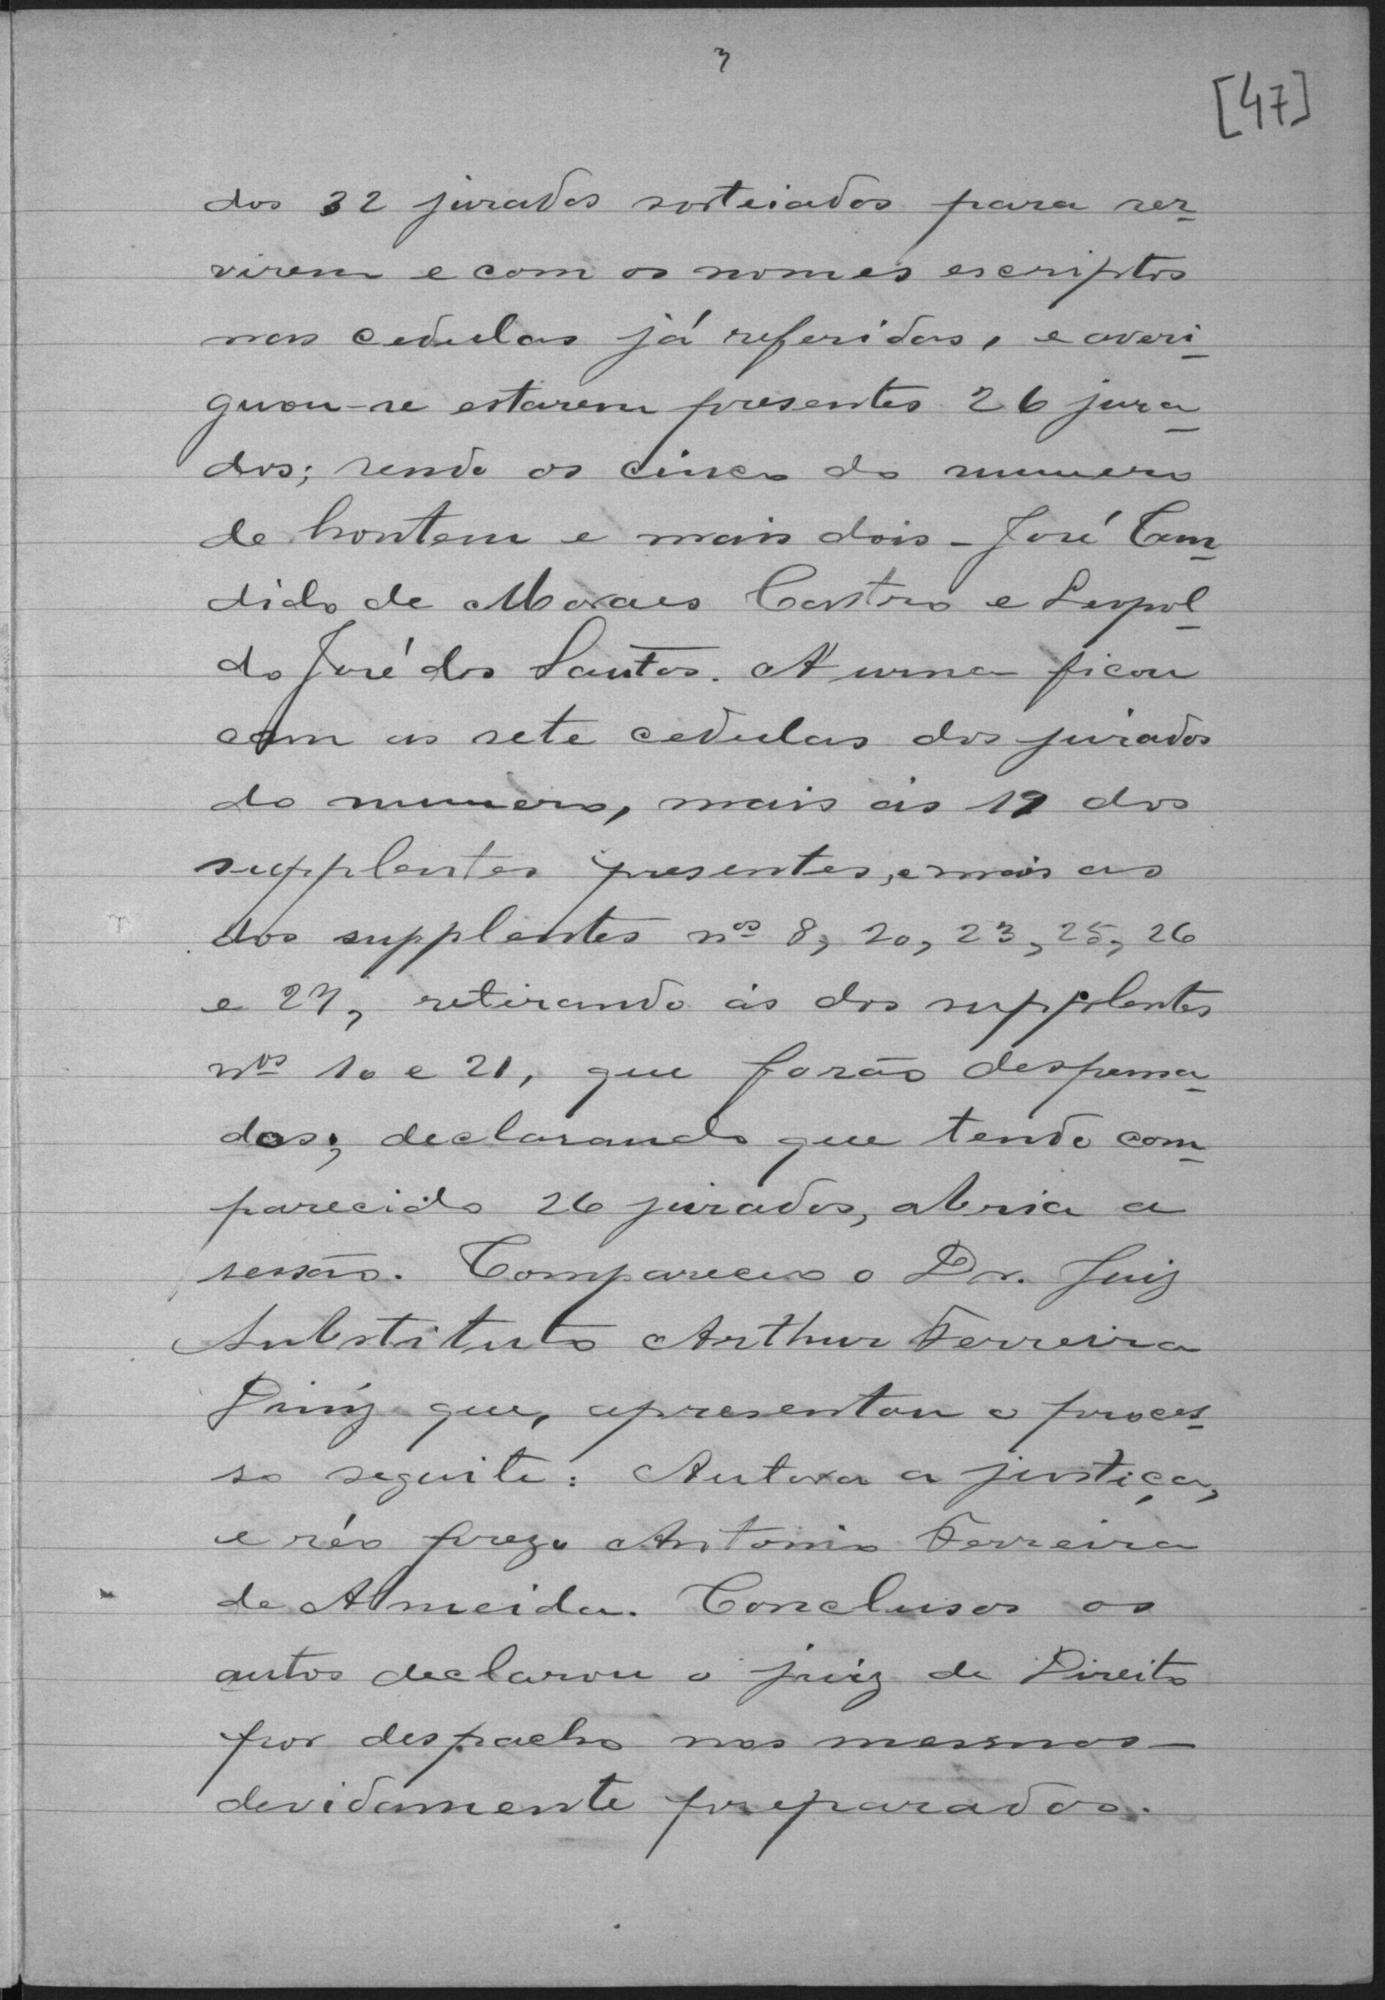 3
[47]
dos 32 jurados sorteiados para ser-
virem e com os nomes escriptos
nas cedulas já referidas, e averi-
guou-se estarem presentes 26 jura-
dos; sendo os cinco do numero
de hontem e mais dois - José Can-
dido de Moraes Castro e Leopol-
do José dos Santos. A urna ficou
com as sete cedulas dos jurados
do numero, mais ás 19 dos
supplentes presentes, e mais as
dos supplentes nos 8, 20, 23, 25, 26
e 27, retirando ás dos supplentes
nos 10 e 21, que forão despensa-
dos; declarando que tendo com-
parecido 26 jurados, abria a
sessão. Compareceo o Dr. Juiz
Substituto Arthur Ferreira
Diniz que, apresentou o proces-
so seguite: Autora a justiça,
e réo prezo Antonio Ferreira
de Almeida. Conclusos os
autos declarou o juiz de Direito
por despacho nos mesmos -
devidamente preparados.